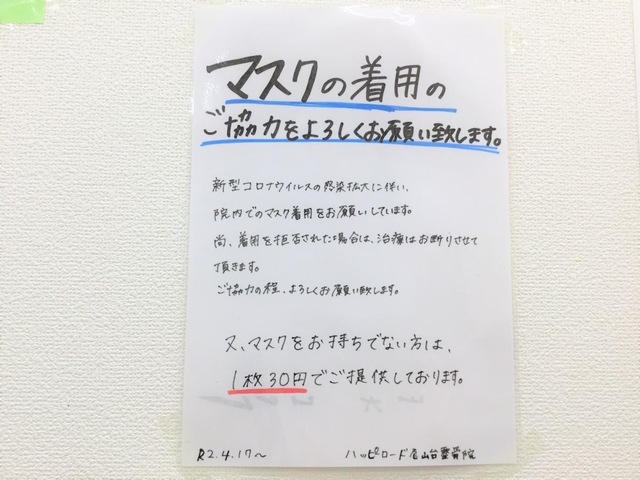 マスクの着用の
ご協力をよろしくお願い致します。
新型コロナウイルスの感染拡大に伴い、
院内でのマスク着用をお願いしています。
尚、着用を拒否された場合は、治療はお断りさせて
頂きます。
ご協力の程、よろしくお願い致します。
又、マスクをお持ちでない方は、
1枚30円でご提供しております。
R2.4.17～
ハッピーロード尾山台整骨院